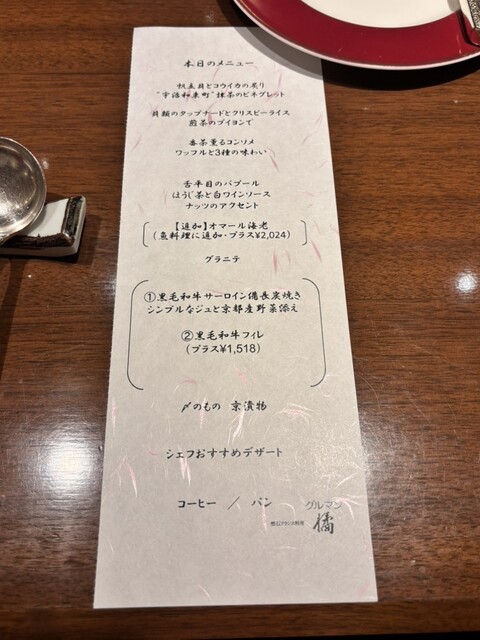 本日のメニュー
帆立貝とコウイカの炙り
"宇治和束町"抹茶のビネグレット
貝類のタップナードとクリスピーライス
煎茶のブイヨンで
番茶薫るコンソメ
ワッフルと3種の味わい
舌平目のバプール
ほうじ茶と白ワインソース
ナッツのアクセント
【追加】オマール海老
(魚料理に追加・プラス¥2,024)
グラニテ
①黒毛和牛サーロイン備長炭焼き
シンプルなジュと京都産野菜添え
②黒毛和牛フィレ
(プラス¥1,518)
〆のもの 京漬物
シェフおすすめデザート
コーヒー / パン
グルマン
懐石フランス料理
橘